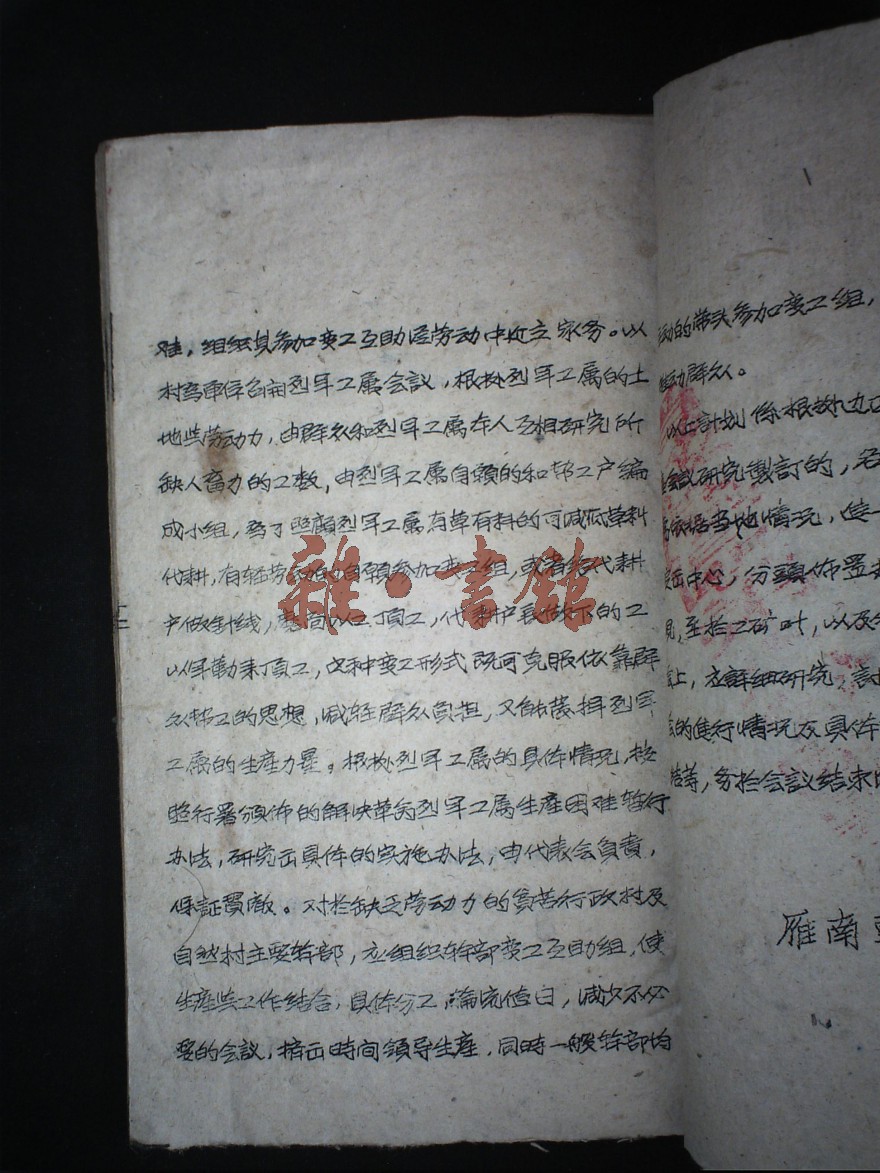 难，组织其参加变工互助従劳动中建立家务。以
村为单位召开烈军工属会議，根据烈军工属的土
地些劳动力，由群众和烈军工属本人互相研究所
缺人畜力的工数，由烈军工属自願的和帮工户編
成小组，为了照顧烈军工属有草有料的可减低草料
代耕，有轻劳动的自願参加变工组，或者给代耕
户做針线，以工頂工，代耕户長做下的工
以军勤来頂工，这种变工形式既可克服依靠群
众帮工的思想，减轻群众負担，又能發揮烈军
工属的生產力量。根据烈军工属的具体情况，按
照行署頒佈的解决革命烈军工属生產困难暫行
办法，研究出具体的实施办法，由代表会負責，
保証貫徹。对於缺乏劳动力的貧苦行政村及
自然村主要幹部，应组织幹部变工互助组，使
生產些工作结合，具体分工，輪流值日，减少不必
要的会議，擠出時间領导生產，同時一般幹部均
动的带头参加变工组，
动群众。
以上計划係根据九
会議研究製訂的，各
依据当地情况，進一
出中心，分頭佈置
見，至於工矿业，以及
上，应詳細研究，討
的進行情况及具体
结等，务於会議结束
雁南
雜·書館